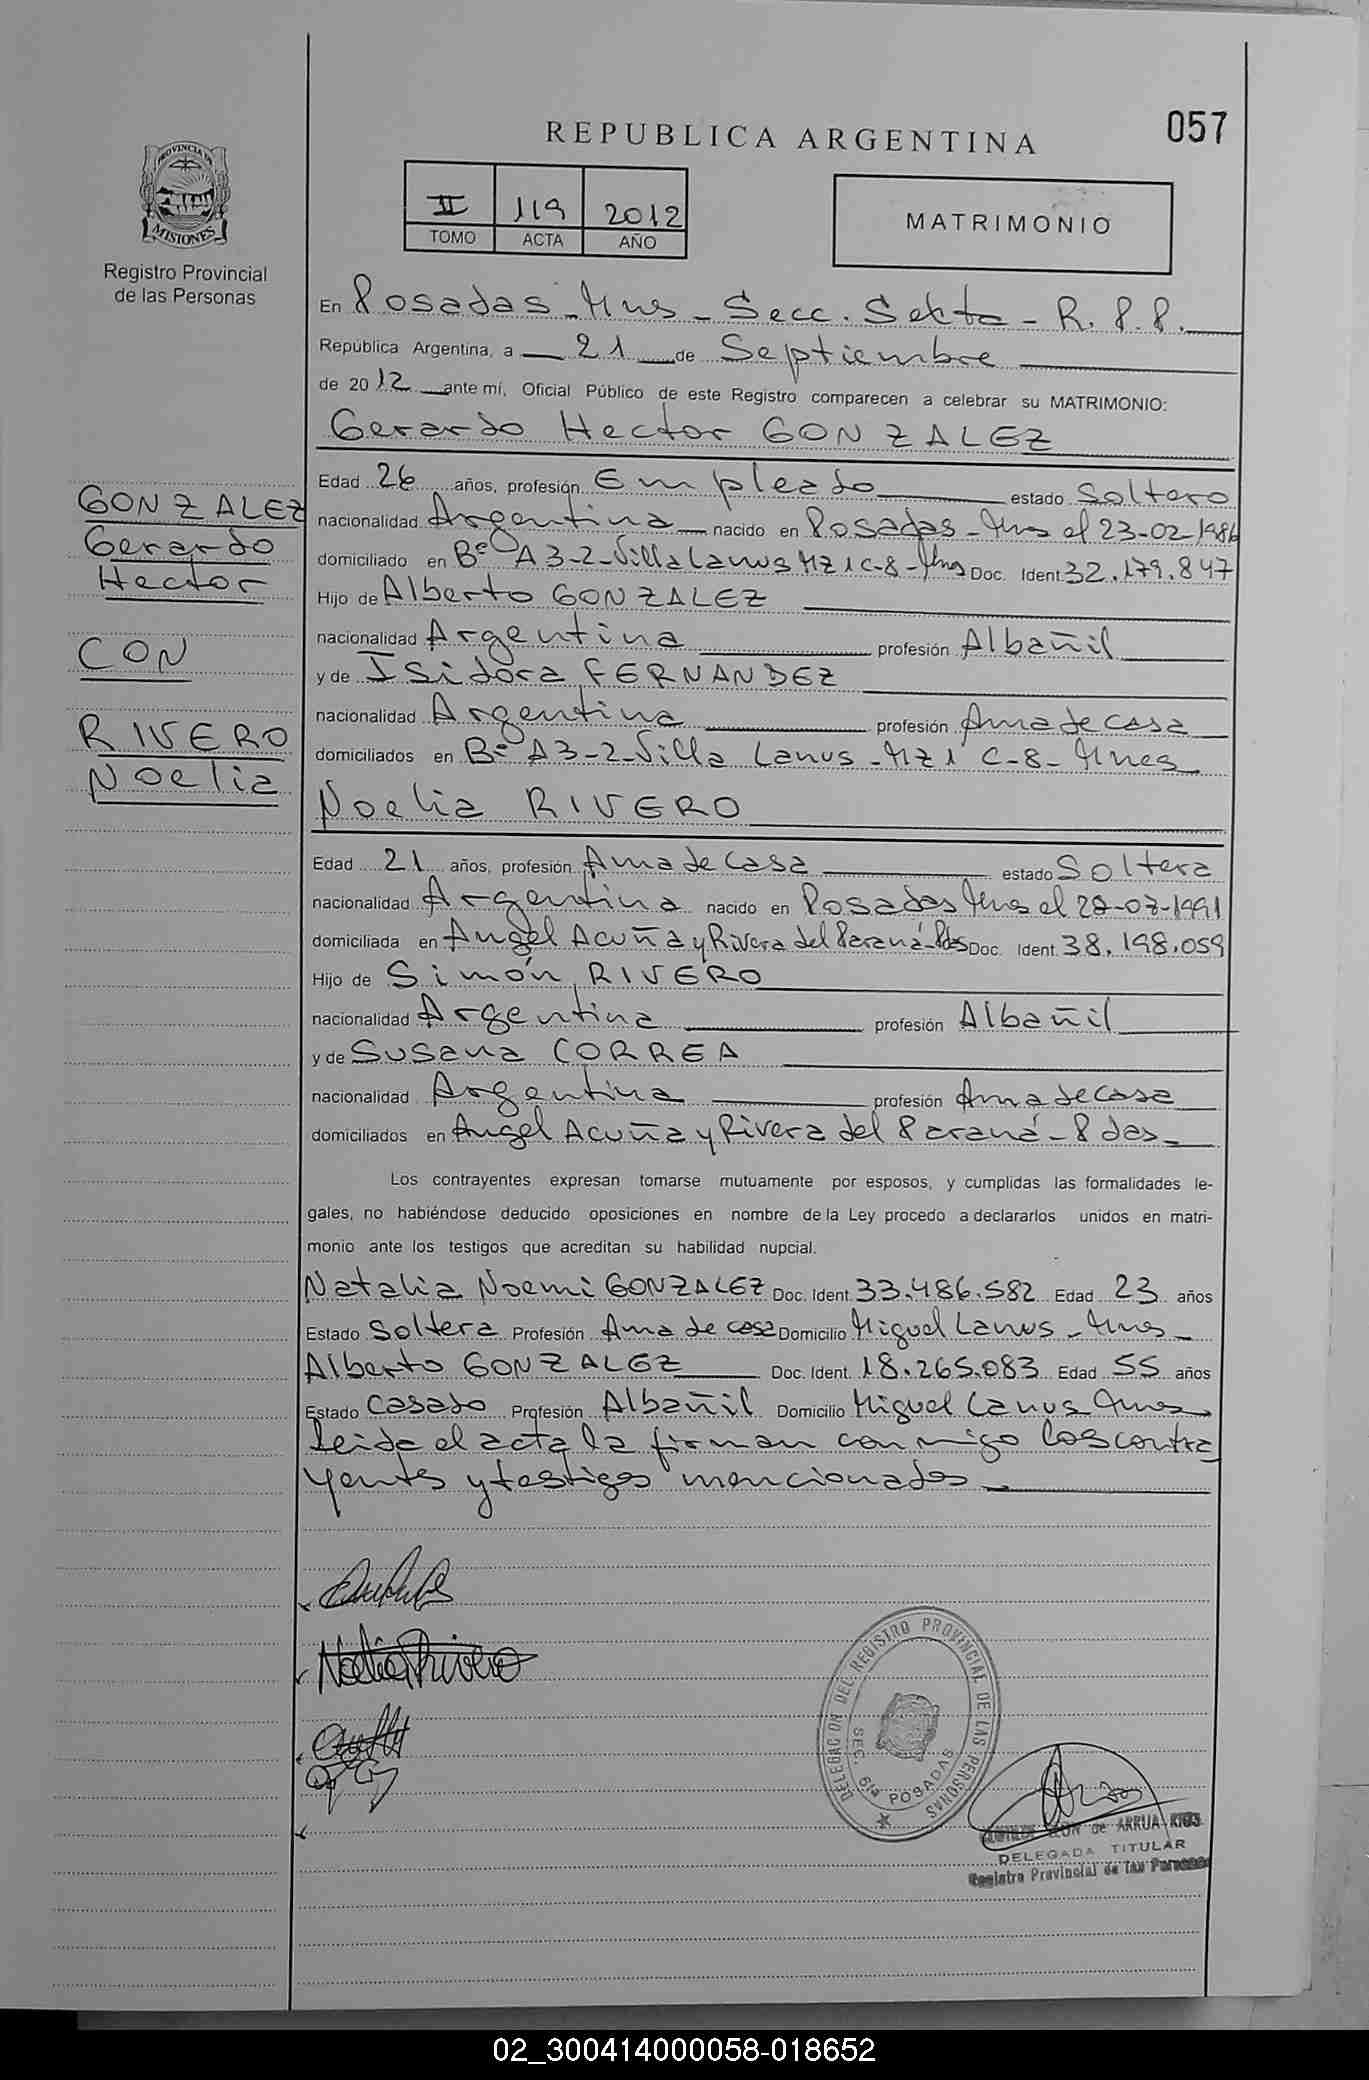 057
REPUBLICA ARGENTINA
PROVINCIA DE
MISIONES
Registro Provincial
de las Personas
II 119 2012
TOMO ACTA AÑO
MATRIMONIO
En Posadas - Mns - Secc. Sexta - R.P.P.
República Argentina, a 21 de Septiembre
de 2012 ante mí, Oficial Público de este Registro comparecen a celebrar su MATRIMONIO:
Gerardo Hector GONZALEZ
GONZALEZ
Gerardo
Hector
CON
RIVERO
Noelia
Edad 26 años, profesión Empleado estado Soltero
nacionalidad Argentina nacido en Posadas - Mns el 23-02-1986
domiciliado en Bº A3-2-Villa Lanus Mz 1 C-8-Mns Doc. Ident. 32.179.847
Hijo de Alberto GONZALEZ
nacionalidad Argentina profesión Albañil
y de Isidora FERNANDEZ
nacionalidad Argentina profesión Ama de casa
domiciliados en Bº A3-2-Villa Lanus - Mz 1 C-8- Mnes
Noelia RIVERO
Edad 21 años, profesión Ama de casa estado Soltera
nacionalidad Argentina nacido en Posadas Mns el 28-07-1991
domiciliada en Angel Acuña y Rivera del Paraná-Pdas Doc. Ident. 38.198.059
Hijo de Simón RIVERO
nacionalidad Argentina profesión Albañil
y de Susana CORREA
nacionalidad Argentina profesión Ama de casa
domiciliados en Angel Acuña y Rivera del Paraná - Pdas-
Los contrayentes expresan tomarse mutuamente por esposos, y cumplidas las formalidades le-
gales, no habiéndose deducido oposiciones en nombre de la Ley procedo a declararlos unidos en matri-
monio ante los testigos que acreditan su habilidad nupcial.
Natalia Noemi GONZALEZ Doc. Ident. 33.486.582 Edad 23 años
Estado Soltera Profesión Ama de casa Domicilio Miguel Lanus - Mnes-
Alberto GONZALEZ Doc. Ident. 18.265.083 Edad 55 años
Estado Casado Profesión Albañil Domicilio Miguel Lanus Mnes
Leida el acta la firman conmigo los contra
yentes y testigos mencionados
Noelia Rivero
DELEGACION DEL REGISTRO PROVINCIAL DE LAS PERSONAS
SEC. 6ta POSADAS
de ARRUA RIOS
DELEGADA TITULAR
Registro Provincial de las Personas
02_300414000058-018652